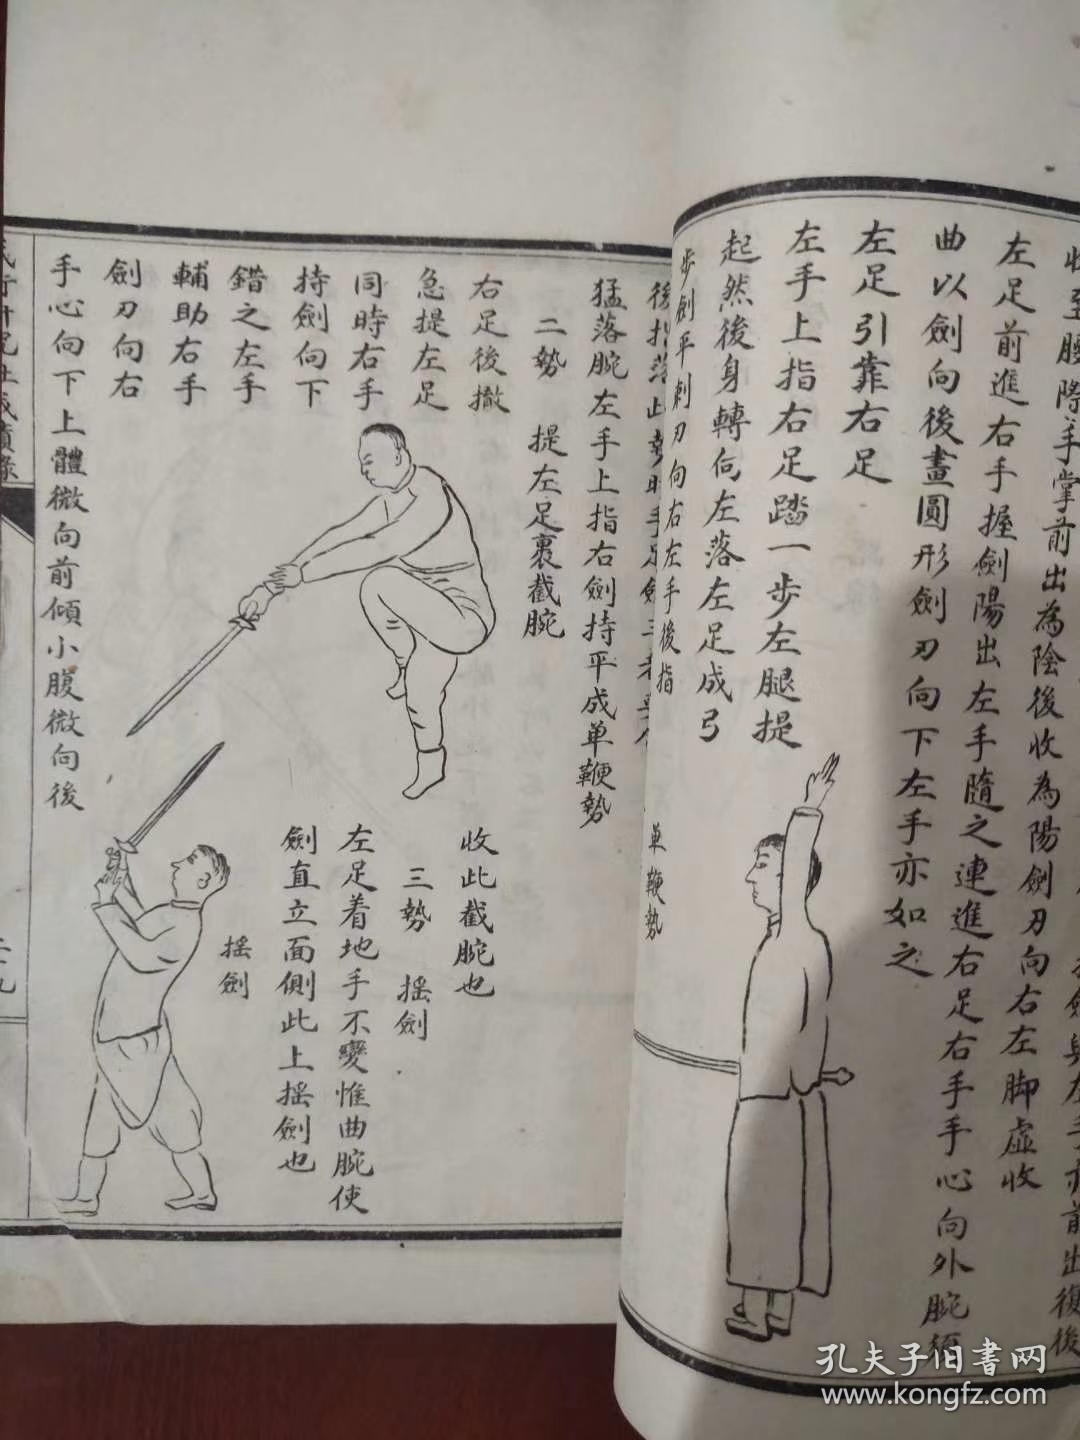 左足前進右手握劍陽出左手隨之連進右足右手手心向外腕須
曲以劍向後畫圓形劍刃向下左手亦如之
左足引靠右足
左手上指右足踏一步左腿提
起然後身轉向左落左足成弓
步劍平刺刃向右左手後指
單鞭勢
猛落腕左手上指右劍持平成單鞭勢
二勢 提左足裹截腕
右足後撤
急提左足
同時右手
持劍向下
錯之左手
輔助右手
劍刃向右
手心向下上體微向前傾小腹微向後
收此截腕也
三勢 搖劍
左足着地手不變惟曲腕使
劍直立面側此上搖劍也
搖劍
孔夫子旧書网
www.kongfz.com